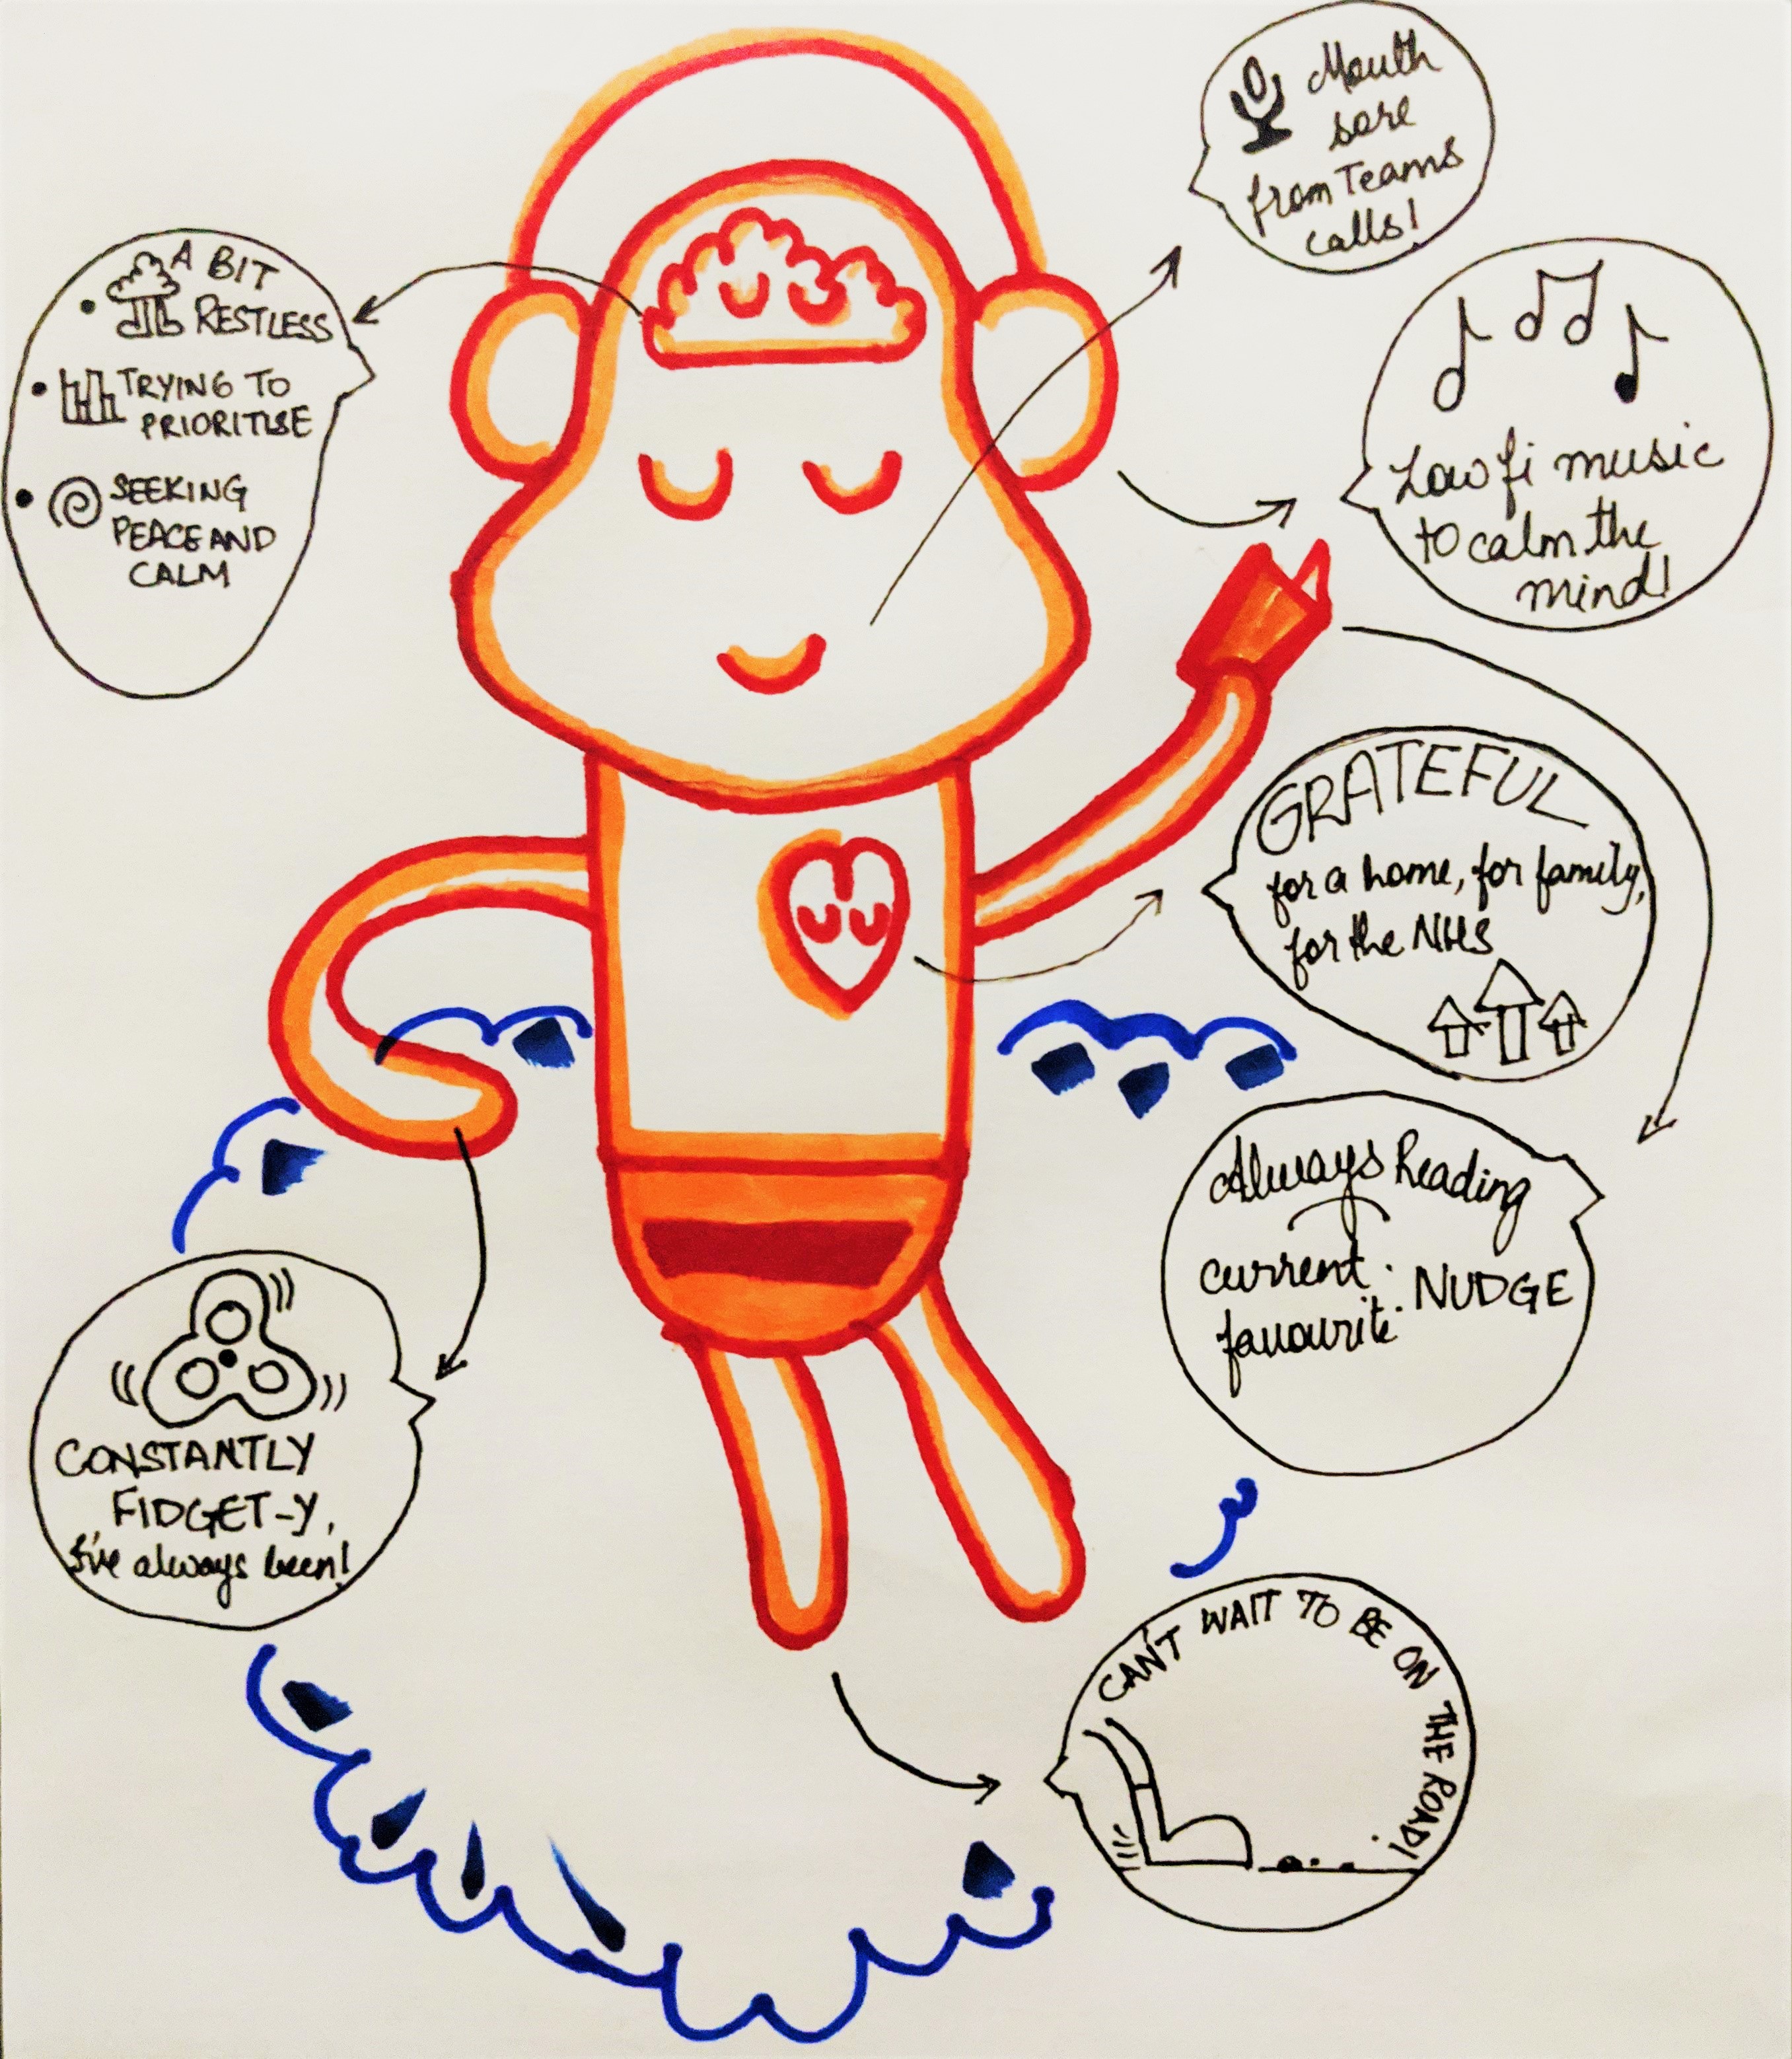 A BIT
RESTLESS
TRYING TO
PRIORITISE
SEEKING
PEACE AND
CALM
Mouth
sore
from Teams
calls!
Low fi music
to calm the
mind!
GRATEFUL
for a home, for family,
for the NHS
Always Reading
current
favourite: NUDGE
CONSTANTLY
FIDGET-Y,
I've always been!
CAN'T WAIT TO BE ON THE ROAD!